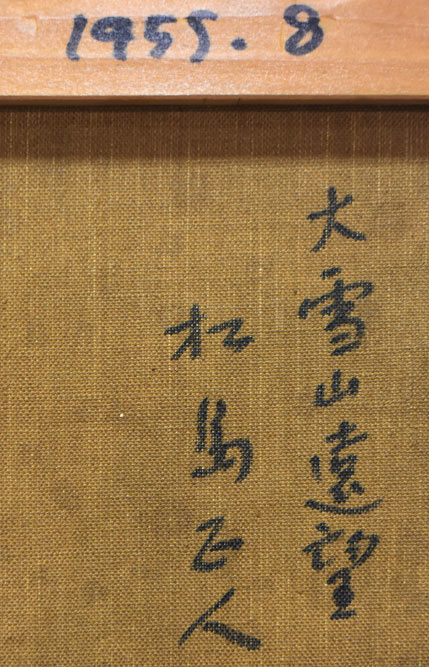 1955.8
大雪山遠望
松島正人